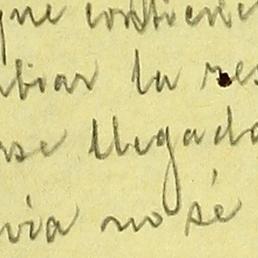 que contiene
biar la res
rse llegado
via no sé